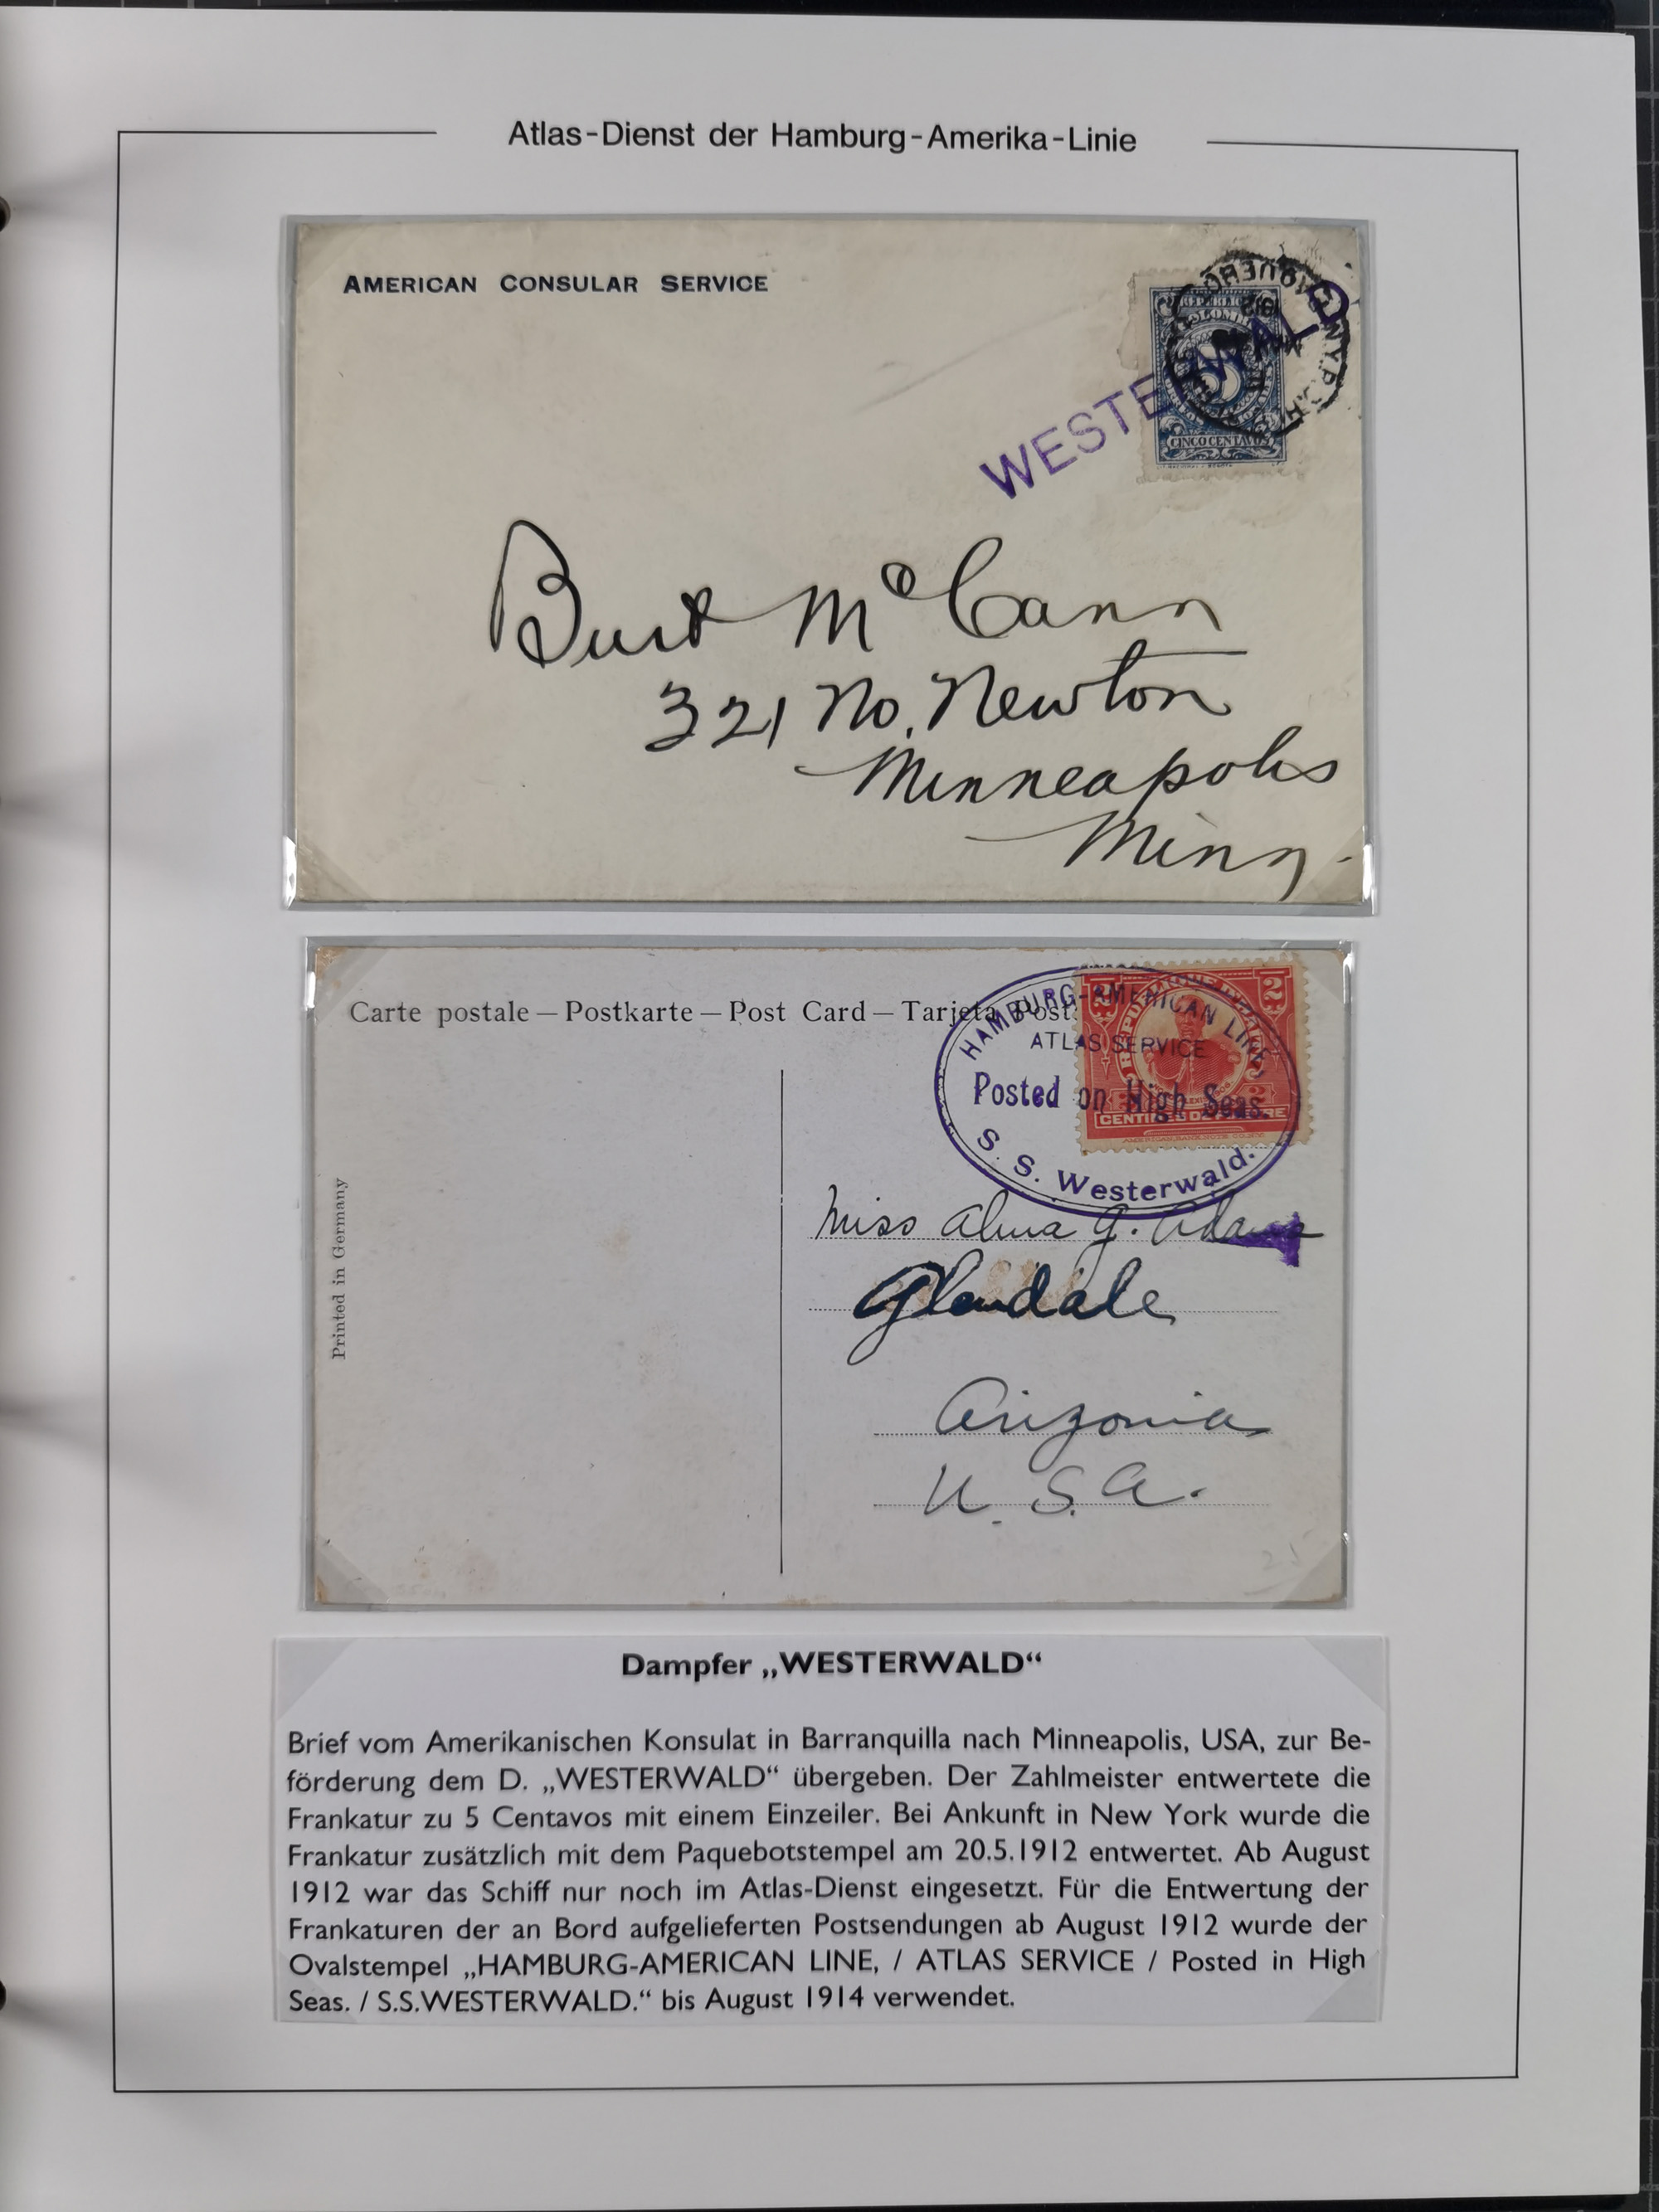 Atlas-Dienst der Hamburg-Amerika-Linie
AMERICAN CONSULAR SERVICE
WESTERWALD
CINCO CENTAVOS
Burt McCann
321 No. Newton
Minneapolis
Minn.
Carte postale — Postkarte — Post Card — Tarjeta Post
HAMBURG-AMERICAN LINE,
ATLAS SERVICE
Posted on High Seas.
S. S. Westerwald.
2 2
Printed in Germany
Miss Alma G. Adams
Glendale
Arizonia
U. S. A.
Dampfer „WESTERWALD“
Brief vom Amerikanischen Konsulat in Barranquilla nach Minneapolis, USA, zur Be-
förderung dem D. „WESTERWALD“ übergeben. Der Zahlmeister entwertete die
Frankatur zu 5 Centavos mit einem Einzeiler. Bei Ankunft in New York wurde die
Frankatur zusätzlich mit dem Paquebotstempel am 20.5.1912 entwertet. Ab August
1912 war das Schiff nur noch im Atlas-Dienst eingesetzt. Für die Entwertung der
Frankaturen der an Bord aufgelieferten Postsendungen ab August 1912 wurde der
Ovalstempel „HAMBURG-AMERICAN LINE, / ATLAS SERVICE / Posted in High
Seas. / S.S.WESTERWALD.“ bis August 1914 verwendet.